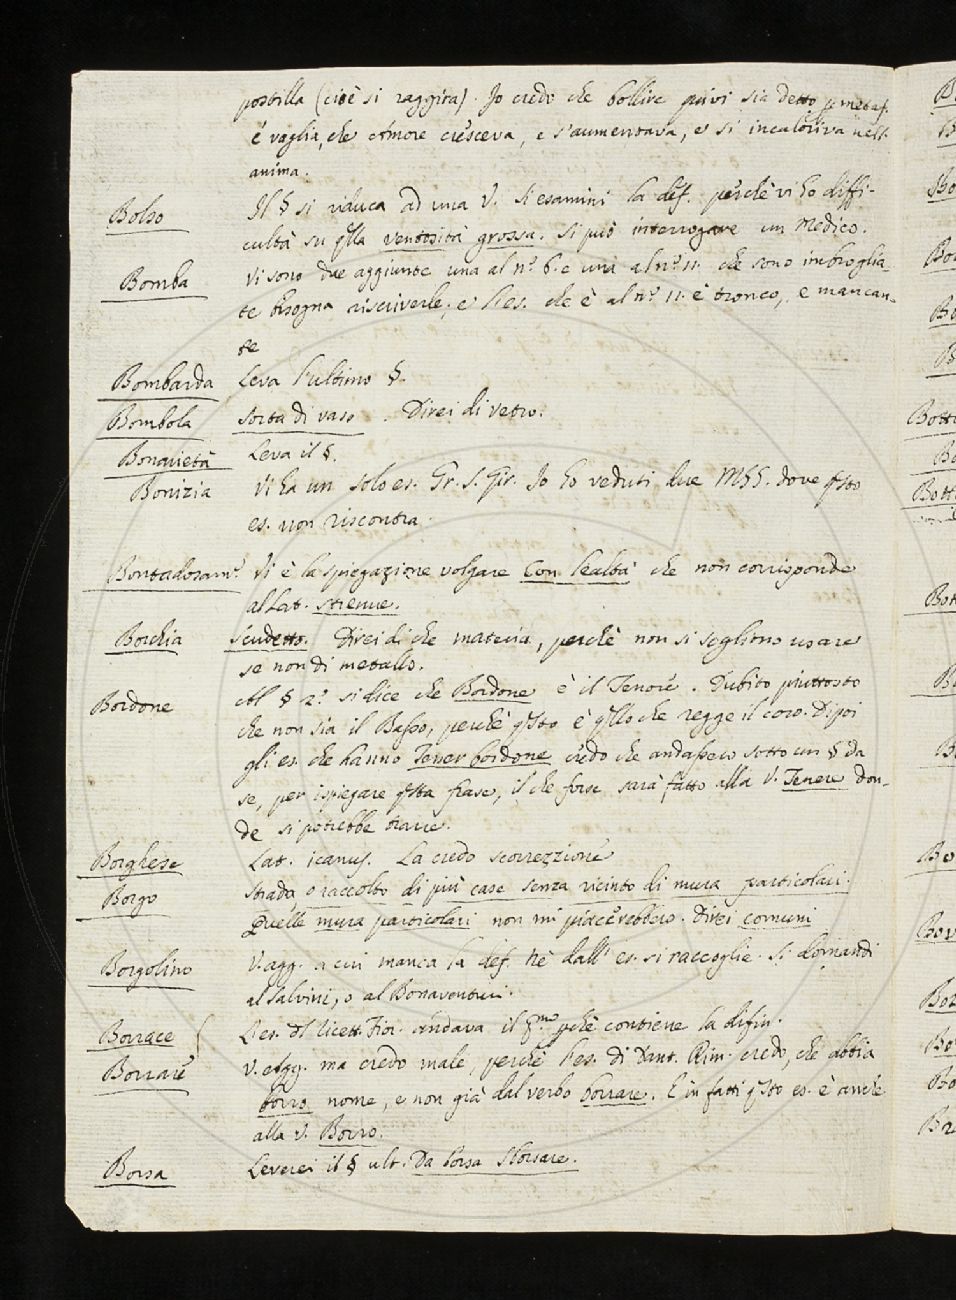 postilla (cioè si raggira). Io credo che bollire quivi sia detto p metaf.
é vaglia, che Amore cresceva, e s'aumentava, e si incaloriva nell'
anima.
Bolso Il § si riduca ad una V. Si esamini la def. perchè vi ho diffi-
cultà su qlla ventosità grossa. Si può interrogare un Medico.
Bomba Vi sono due aggiunte una al n.° 6. e una al n.° 11. che sono imbroglia-
te bisogna riscriverle, e l'es. che è al n.° 11. è tronco, e mancan-
te
Bombarda Leva l'ultimo §.
Bombola Sorta di vaso. Direi di vetro.
Bonarietà Leva il §.
Bonizia Vi ha un solo es. Gr. S. Gir. Io ho veduti due MSS. dove qsto
es. non riscontra.
Bontadosam.e Vi è la spiegazione volgare Con lealtà che non corrisponde
al Lat. strenue.
Borchia Scudetto. Direi di che materia, perchè non si sogliono usare
se non di metallo.
Bordone Al § 2.° si dice che Bordone è il Tenore. Dubito piuttosto
che non sia il Basso, perchè qsto è qllo che regge il coro. Dipoi
gli es. che hanno Tener bordone credo che andassero sotto un § da
se, per ispiegare qsta frase, il che forse sarà fatto alla V. Tenere don-
de si potrebbe trarre.
Borghese Lat. icanus. La credo scorrezzione
Borgo Strada, o raccolto di più case senza ricinto di mura particolari.
Quelle mura particolari non mi piacerebbero. Direi comuni
Borgolino V. agg. a cui manca la def. nè dall' es. si raccoglie. Si domandi
al Salvini, o al Bonaventuri.
Borrace L'es. dl Ricett. Fior. Andava il p.mo pchè contiene la difin.
Borrare V. Agg. ma credo male, perchè l'es. di Dant. Rim. credo, che abbia
borro nome, e non già dal verbo borrare. E in fatti qsto es. è anche
alla V. Borro.
Borsa Leverei il § ult. Da borsa Sborsare.